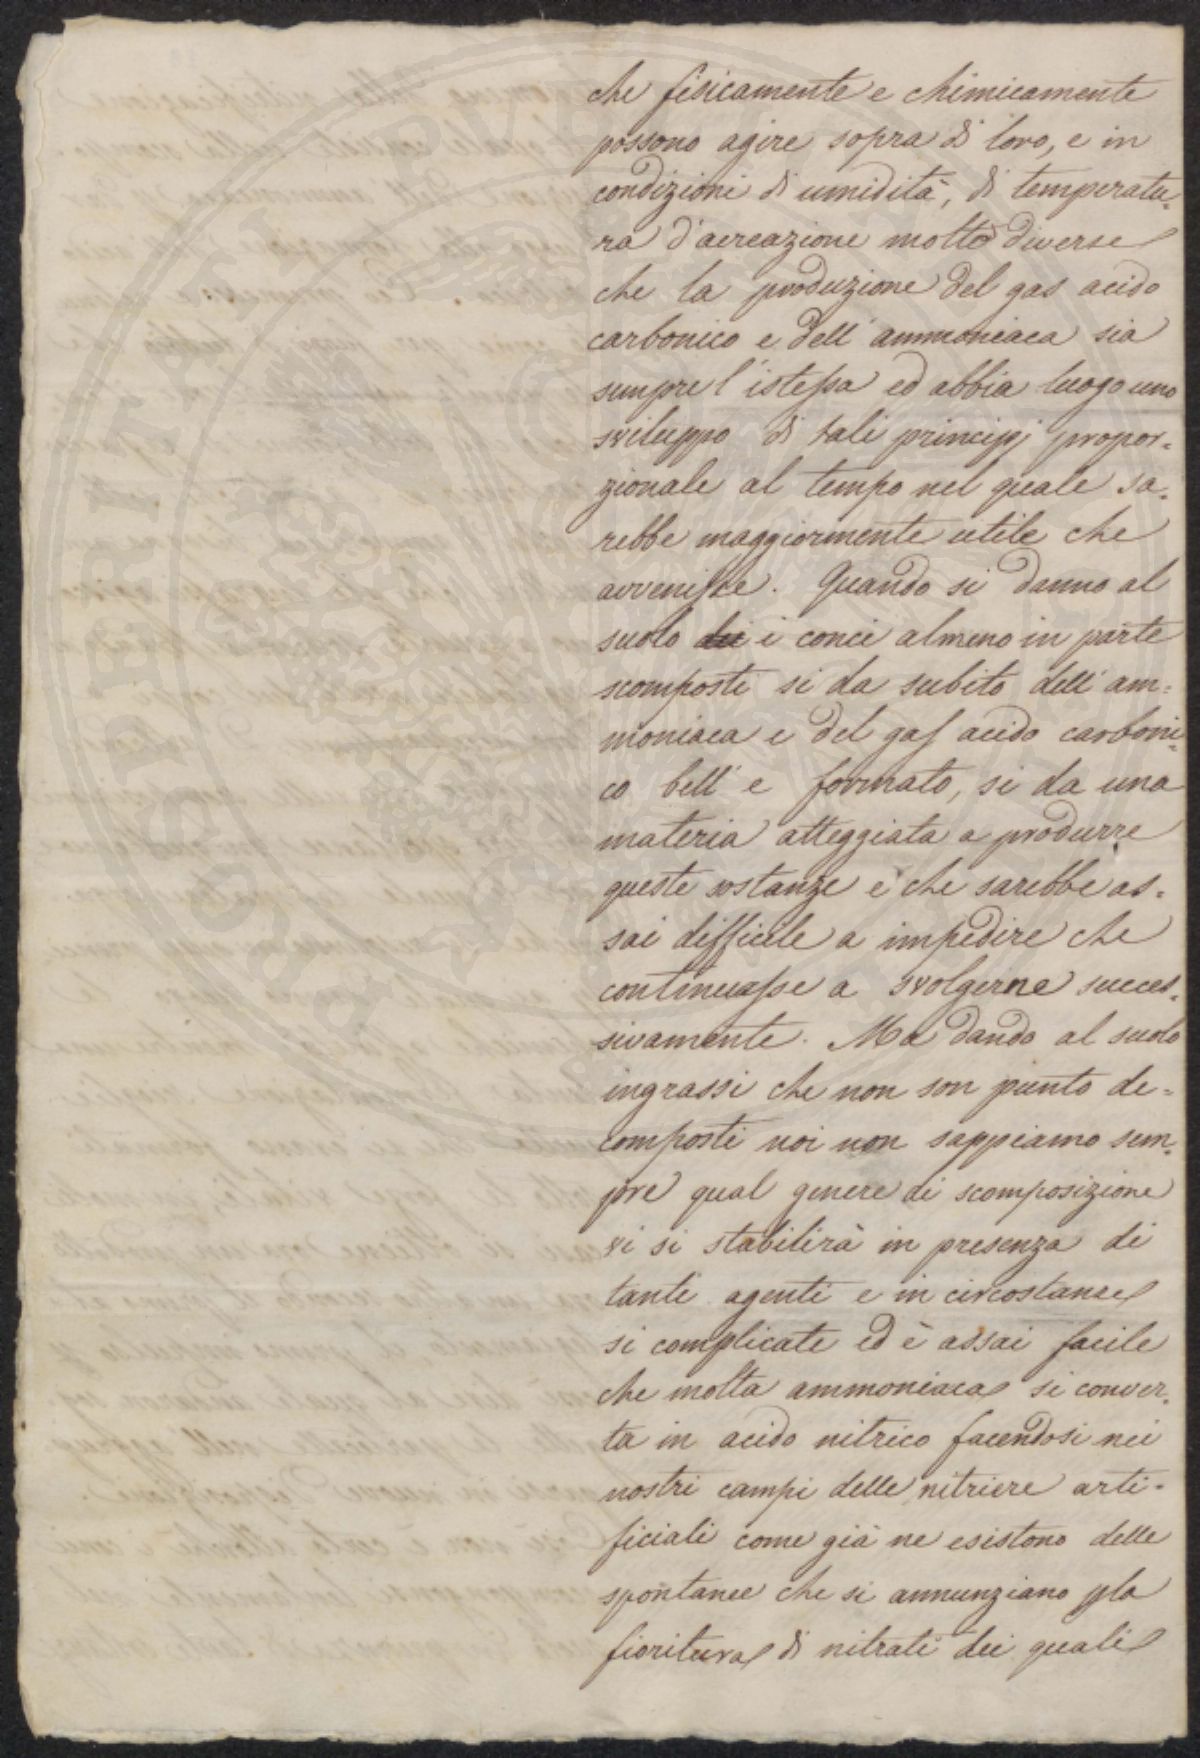 che fisicamente e chimicamente
possono agire sopra di loro, e in
condizioni di umidità, di temperatu=
ra d'aereazione molto diverse
che la produzione del gas acido
carbonico e dell'ammoniaca sia
sempre l'istessa ed abbia luogo uno
sviluppo di tali principj propor=
zionale al tempo nel quale sa=
rebbe maggiormente utile che
avvenisse. Quando si danno al
suolo i conci almeno in parte
scomposti si da subito dell'am=
moniaca e del gas acido carboni=
co bell'e formato, si da una
materia atteggiata a produrre
queste sostanze e che sarebbe as=
sai difficile a impedire che
continuasse a svolgerne succes=
sivamente. Ma dando al suolo
ingrassi che non son punto de=
composti noi non sappiamo sem=
pre qual genere di scomposizione
vi si stabilirà in presenza di
tanti agenti e in circostanze
si complicate ed è assai facile
che molta ammoniaca si conver=
ta in acido nitrico facendosi nei
nostri campi delle nitriere arti=
ficiali come già ne esistono delle
spontanee che si annunziano pla
fioritura di nitrati dei quali
PROSPERITATI PUBLICAE